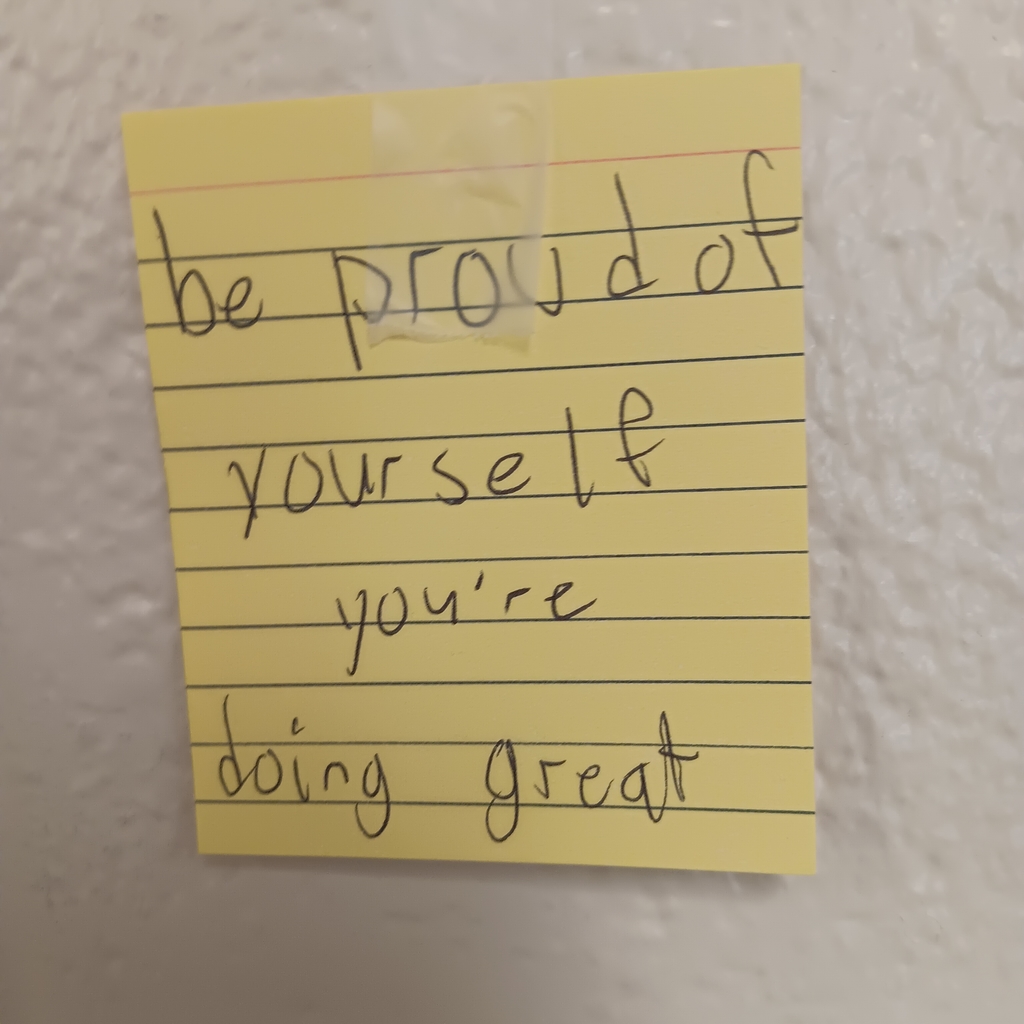 be proud of
yourself
you're
doing great